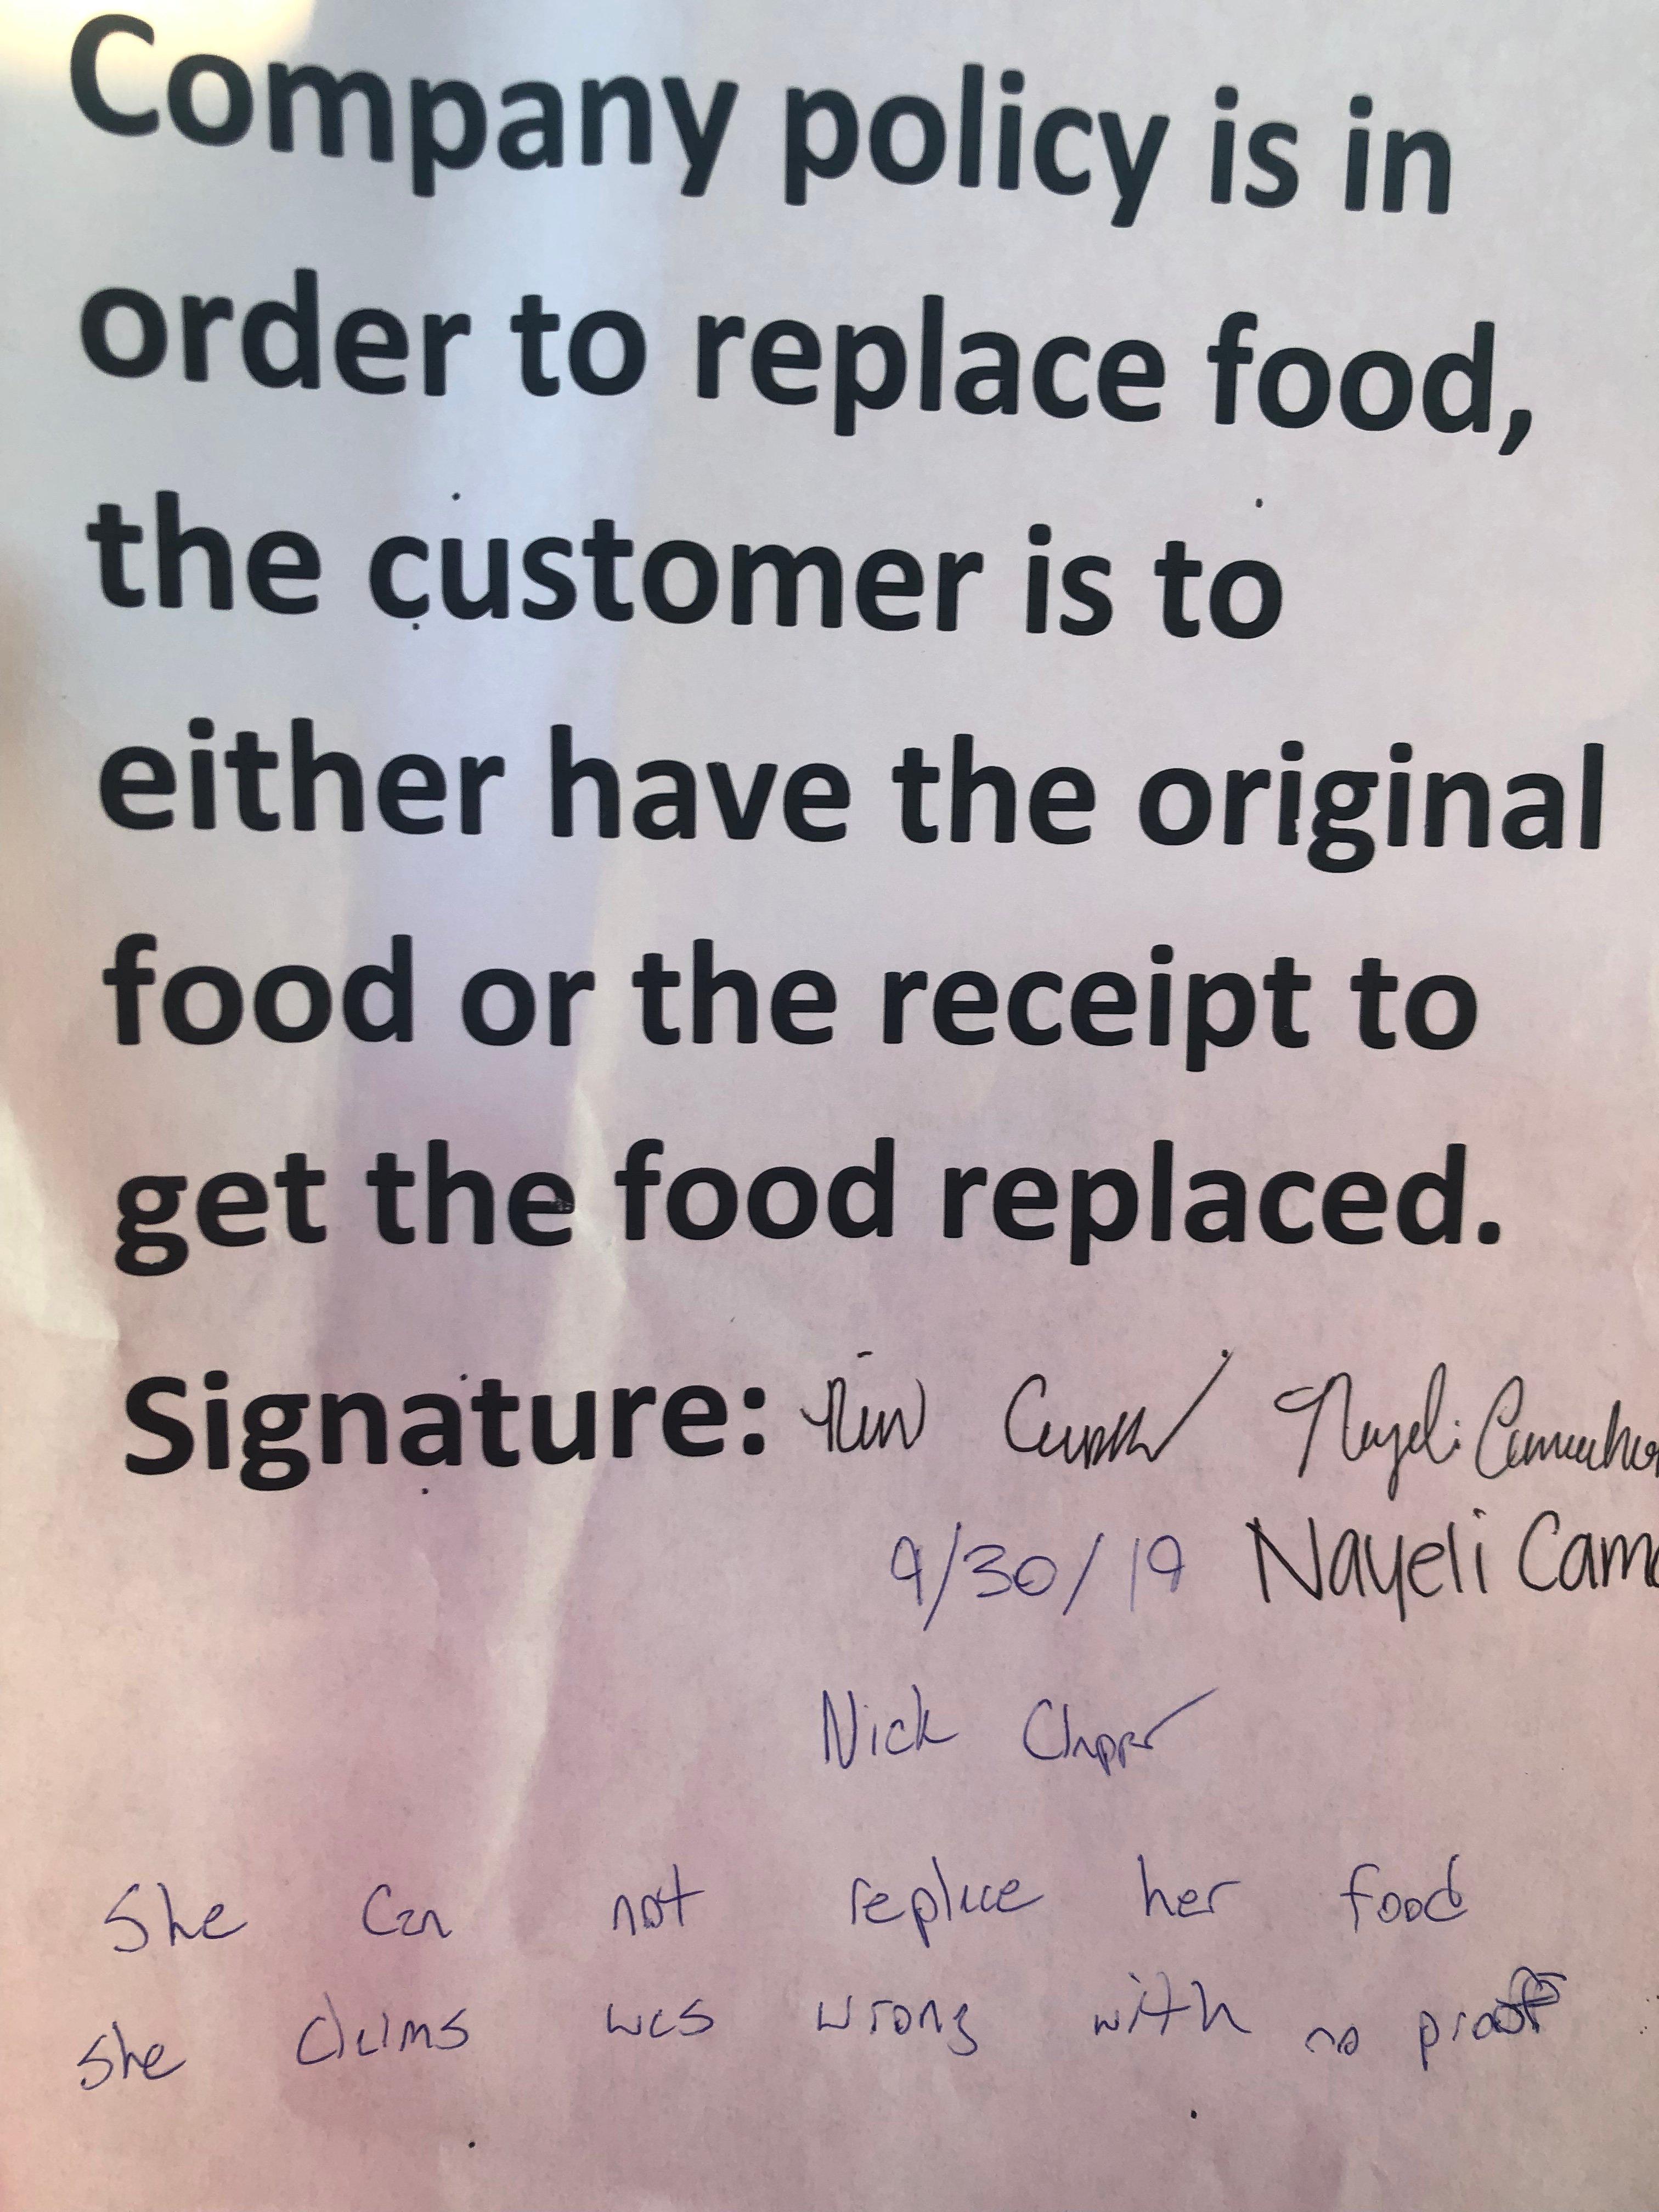 Company policy is in
order to replace food,
the customer is to
either have the original
food or the receipt to
get the food replaced.
Signature: Nayeli
9/30/19 Nayeli Cam
Nick
She Can not replace her food
she claims was wrong with no proof